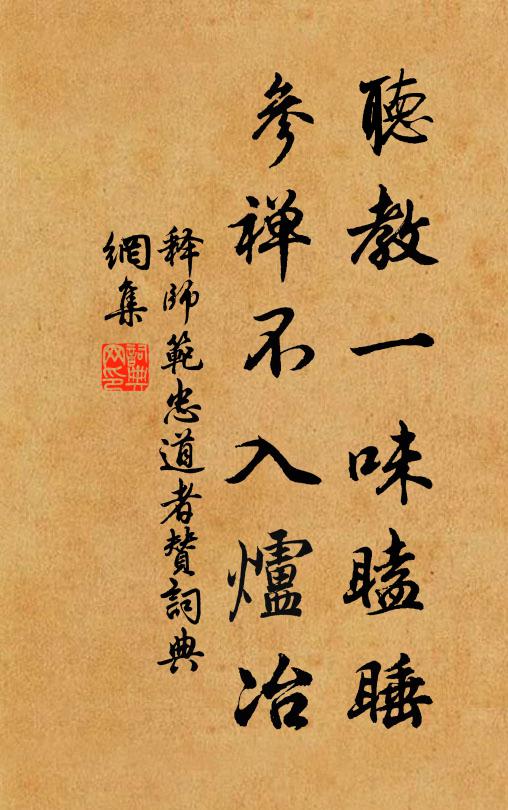 聽教一味瞌睡
參禅不入爐冶
释師範忠道者贊詞典
網集
詞典
网印